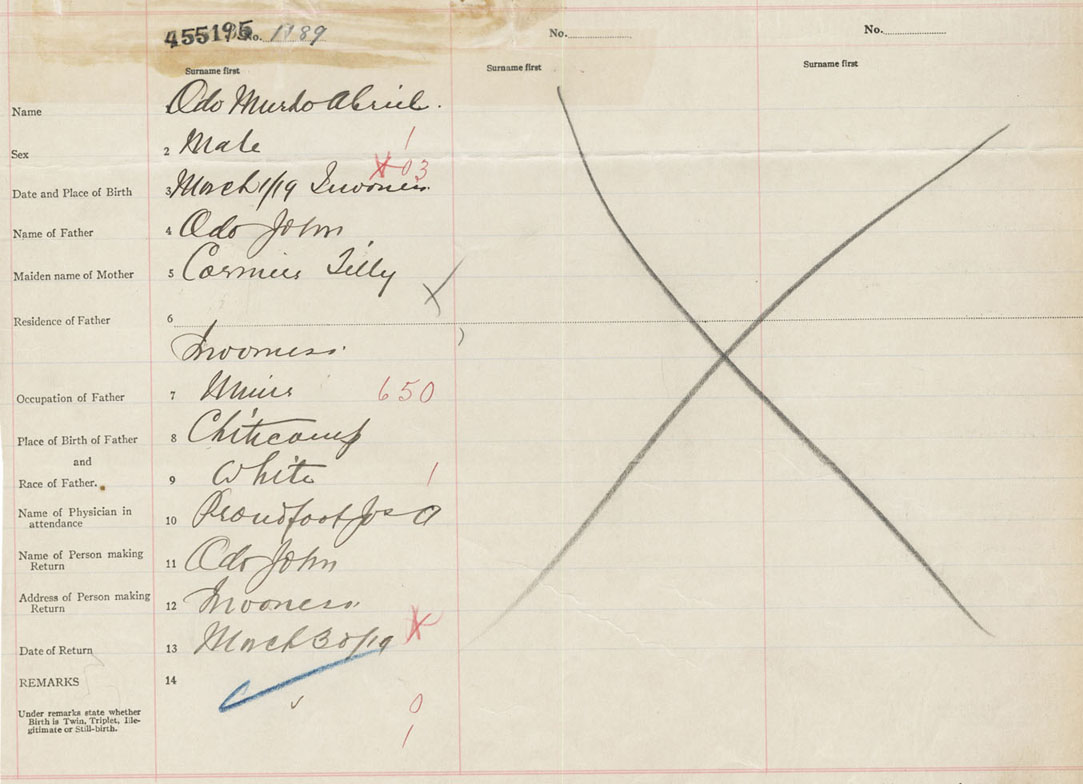 455195 No. 1189 No. No.
Surname first Surname first Surname first
Name Odo Murdo Abriel.
Sex 2 Male 1
X 03
Date and Place of Birth 3 March 1/19 Inverness
Name of Father 4 Odo John
Maiden name of Mother 5 Cormier Tilly
Residence of Father 6
Inverness.
Occupation of Father 7 Miner 650
Place of Birth of Father 8 Cheticamp
and
Race of Father. 9 White 1
Name of Physician in
attendance 10 Proudfoot Jos A
Name of Person making
Return 11 Odo John
Address of Person making
Return 12 Inverness
Date of Return 13 March 30/19 X
REMARKS 14
Under remarks state whether
Birth is Twin, Triplet, Ille-
gitimate or Still-birth.
0
1